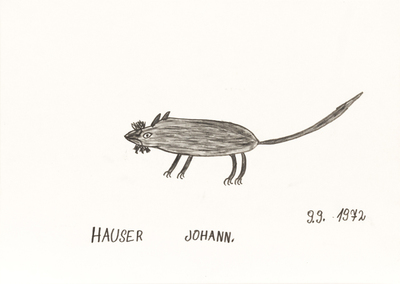 9.9. 1972
HAUSER JOHANN.